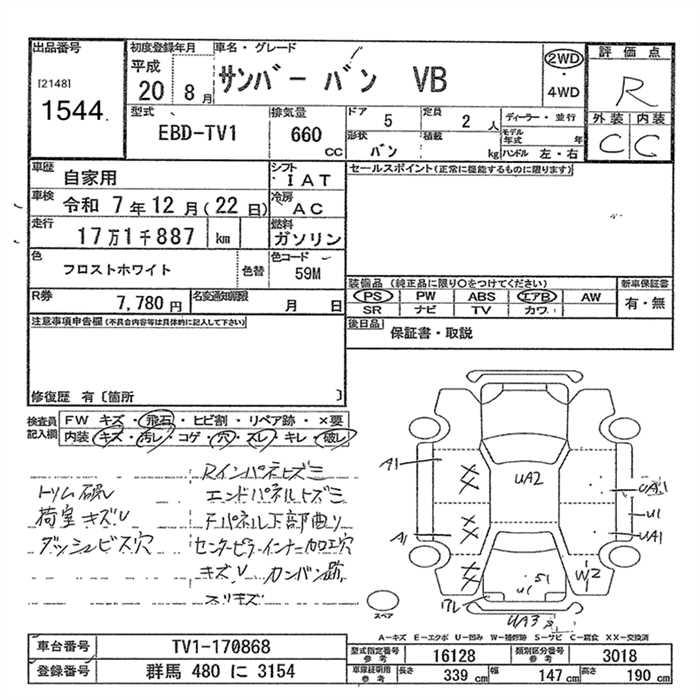 出品番号
[2148]
1544
初度登録年月
平成
20 8月
車名・グレード
サンバー バン VB
2WD
・
4WD
評価点
R
外装 内装
C C
型式
EBD-TV1
排気量
660
CC
ドア 5
定員 2 人
形状 バン
積載 kg
ディーラー・並行
モデル年式 年
ハンドル 左・右
車歴 自家用
シフト IAT
セールスポイント(正常に機能するものに限ります)
車検 令和 7年 12月(22日)
冷房 AC
走行 17万1千887 km
燃料 ガソリン
色 フロストホワイト 色替
色コード 59M
R券 7,780円
名変通知期限 月 日
装備品(純正品に限り〇をつけてください)
新車保証書
PS PW ABS エアB AW
SR ナビ TV カワ
有・無
後日品 保証書・取説
注意事項申告欄(不具合内容等は具体的に記入して下さい)
修復歴 有〔箇所 〕
検査員記入欄
FW キズ・飛石・ヒビ割・リペア跡・×要
内装・キズ・汚レ・コゲ・穴・スレ・キレ・破レ
トリム破レ
荷室キズU
ダッシュビス穴
Rインパネトズミ
エンドパネルトズミ
Fパネル下部曲り
センターピラーインナー加工穴
キズU カンバン跡
スリキズ
A1
A1
XX
XX
XX
UA2
UA1
U1
UA1
W2
S1
U1
UA3
スペア
A-キズ E-エクボ U-凹み W-補修跡 S-サビ C-腐食 XX-交換済
車台番号 TV1-170868
登録番号 群馬 480 に 3154
型式指定番号 参考 16128
類別区分番号 参考 3018
車庫証明用 参考
長さ 339 cm
幅 147 cm
高さ 190 cm